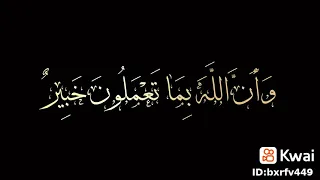 وَأَنَّ اللَّهَ بِمَا تَعْمَلُونَ خَبِيرٌ
Kwai
ID:bxrfv449